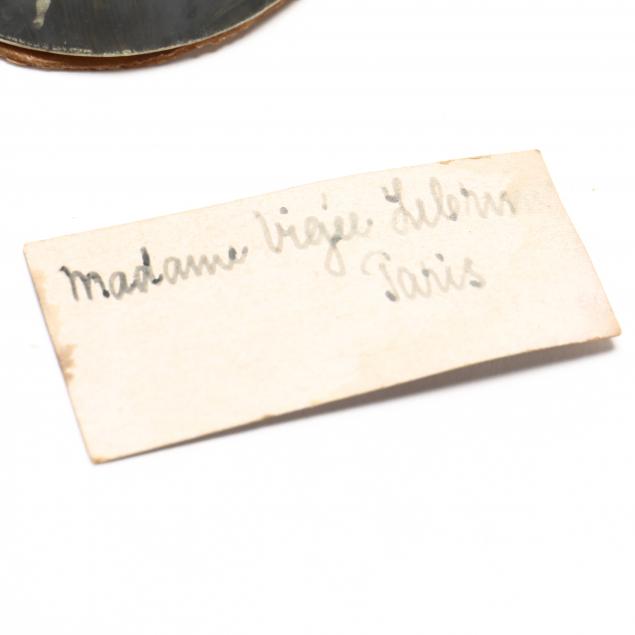 Madame Vigée Lebrun
Paris